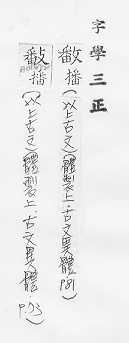 字學三正
𢿥播(以上古文)(體製上.古文異體.P81)
𢿥播(以上古文)(體製上.古文異體.P.73)